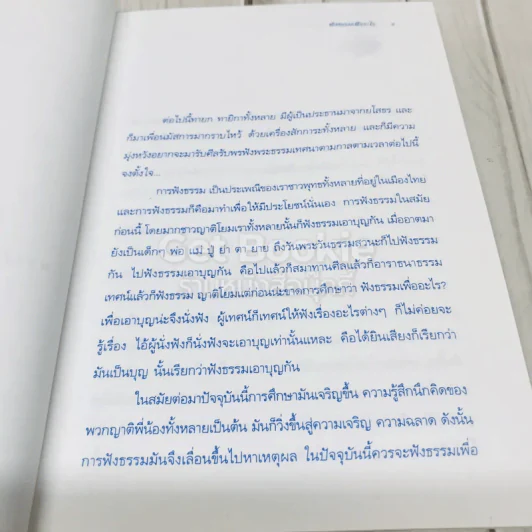 ต่อไปนี้ทายก ทายิกาทั้งหลาย มีผู้เป็นประธานมาจากยโสธร และ
ก็มาเพื่อนมัสการมากราบไหว้ ด้วยเครื่องสักการะทั้งหลาย และก็มีความ
มุ่งหวังอยากจะมารับศีลรับพรฟังพระธรรมเทศนาตามกาลตามเวลาต่อไปนี้
จงตั้งใจ...
การฟังธรรม เป็นประเพณีของเราชาวพุทธทั้งหลายที่อยู่ในเมืองไทย
และการฟังธรรมก็คือมาทำเพื่อให้มีประโยชน์นั่นเอง การฟังธรรมในสมัย
ก่อนนี้ โดยมากชาวญาติโยมเราทั้งหลายนั้นก็ฟังธรรมเอาบุญกัน เมื่ออาตมา
ยังเป็นเด็กๆ พ่อ แม่ ปู่ ย่า ตา ยาย ถึงวันพระวันธรรมสวนะก็ไปฟังธรรม
กัน ไปฟังธรรมเอาบุญกัน คือไปแล้วก็สมาทานศีลแล้วก็อาราธนาธรรม
เทศน์แล้วก็ฟังธรรม ญาติโยมแต่ก่อนน่ะขาดการศึกษาว่า ฟังธรรมเพื่ออะไร?
เพื่อเอาบุญน่ะจึงนั่งฟัง ผู้เทศน์ก็เทศน์ให้ฟังเรื่องอะไรต่างๆ ก็ไม่ค่อยจะ
รู้เรื่อง ไอ้ผู้นั่งฟังก็นั่งฟังจะเอาบุญเท่านั้นแหละ คือได้ยินเสียงก็เรียกว่า
มันเป็นบุญ นั้นเรียกว่าฟังธรรมเอาบุญกัน
ในสมัยต่อมาปัจจุบันนี้การศึกษามันเจริญขึ้น ความรู้สึกนึกคิดของ
พวกญาติพี่น้องทั้งหลายเป็นต้น มันก็วิ่งขึ้นสู่ความเจริญ ความฉลาด ดังนั้น
การฟังธรรมมันจึงเลื่อนขึ้นไปหาเหตุผล ในปัจจุบันนี้ควรจะฟังธรรมเพื่อ
Cat Bookie